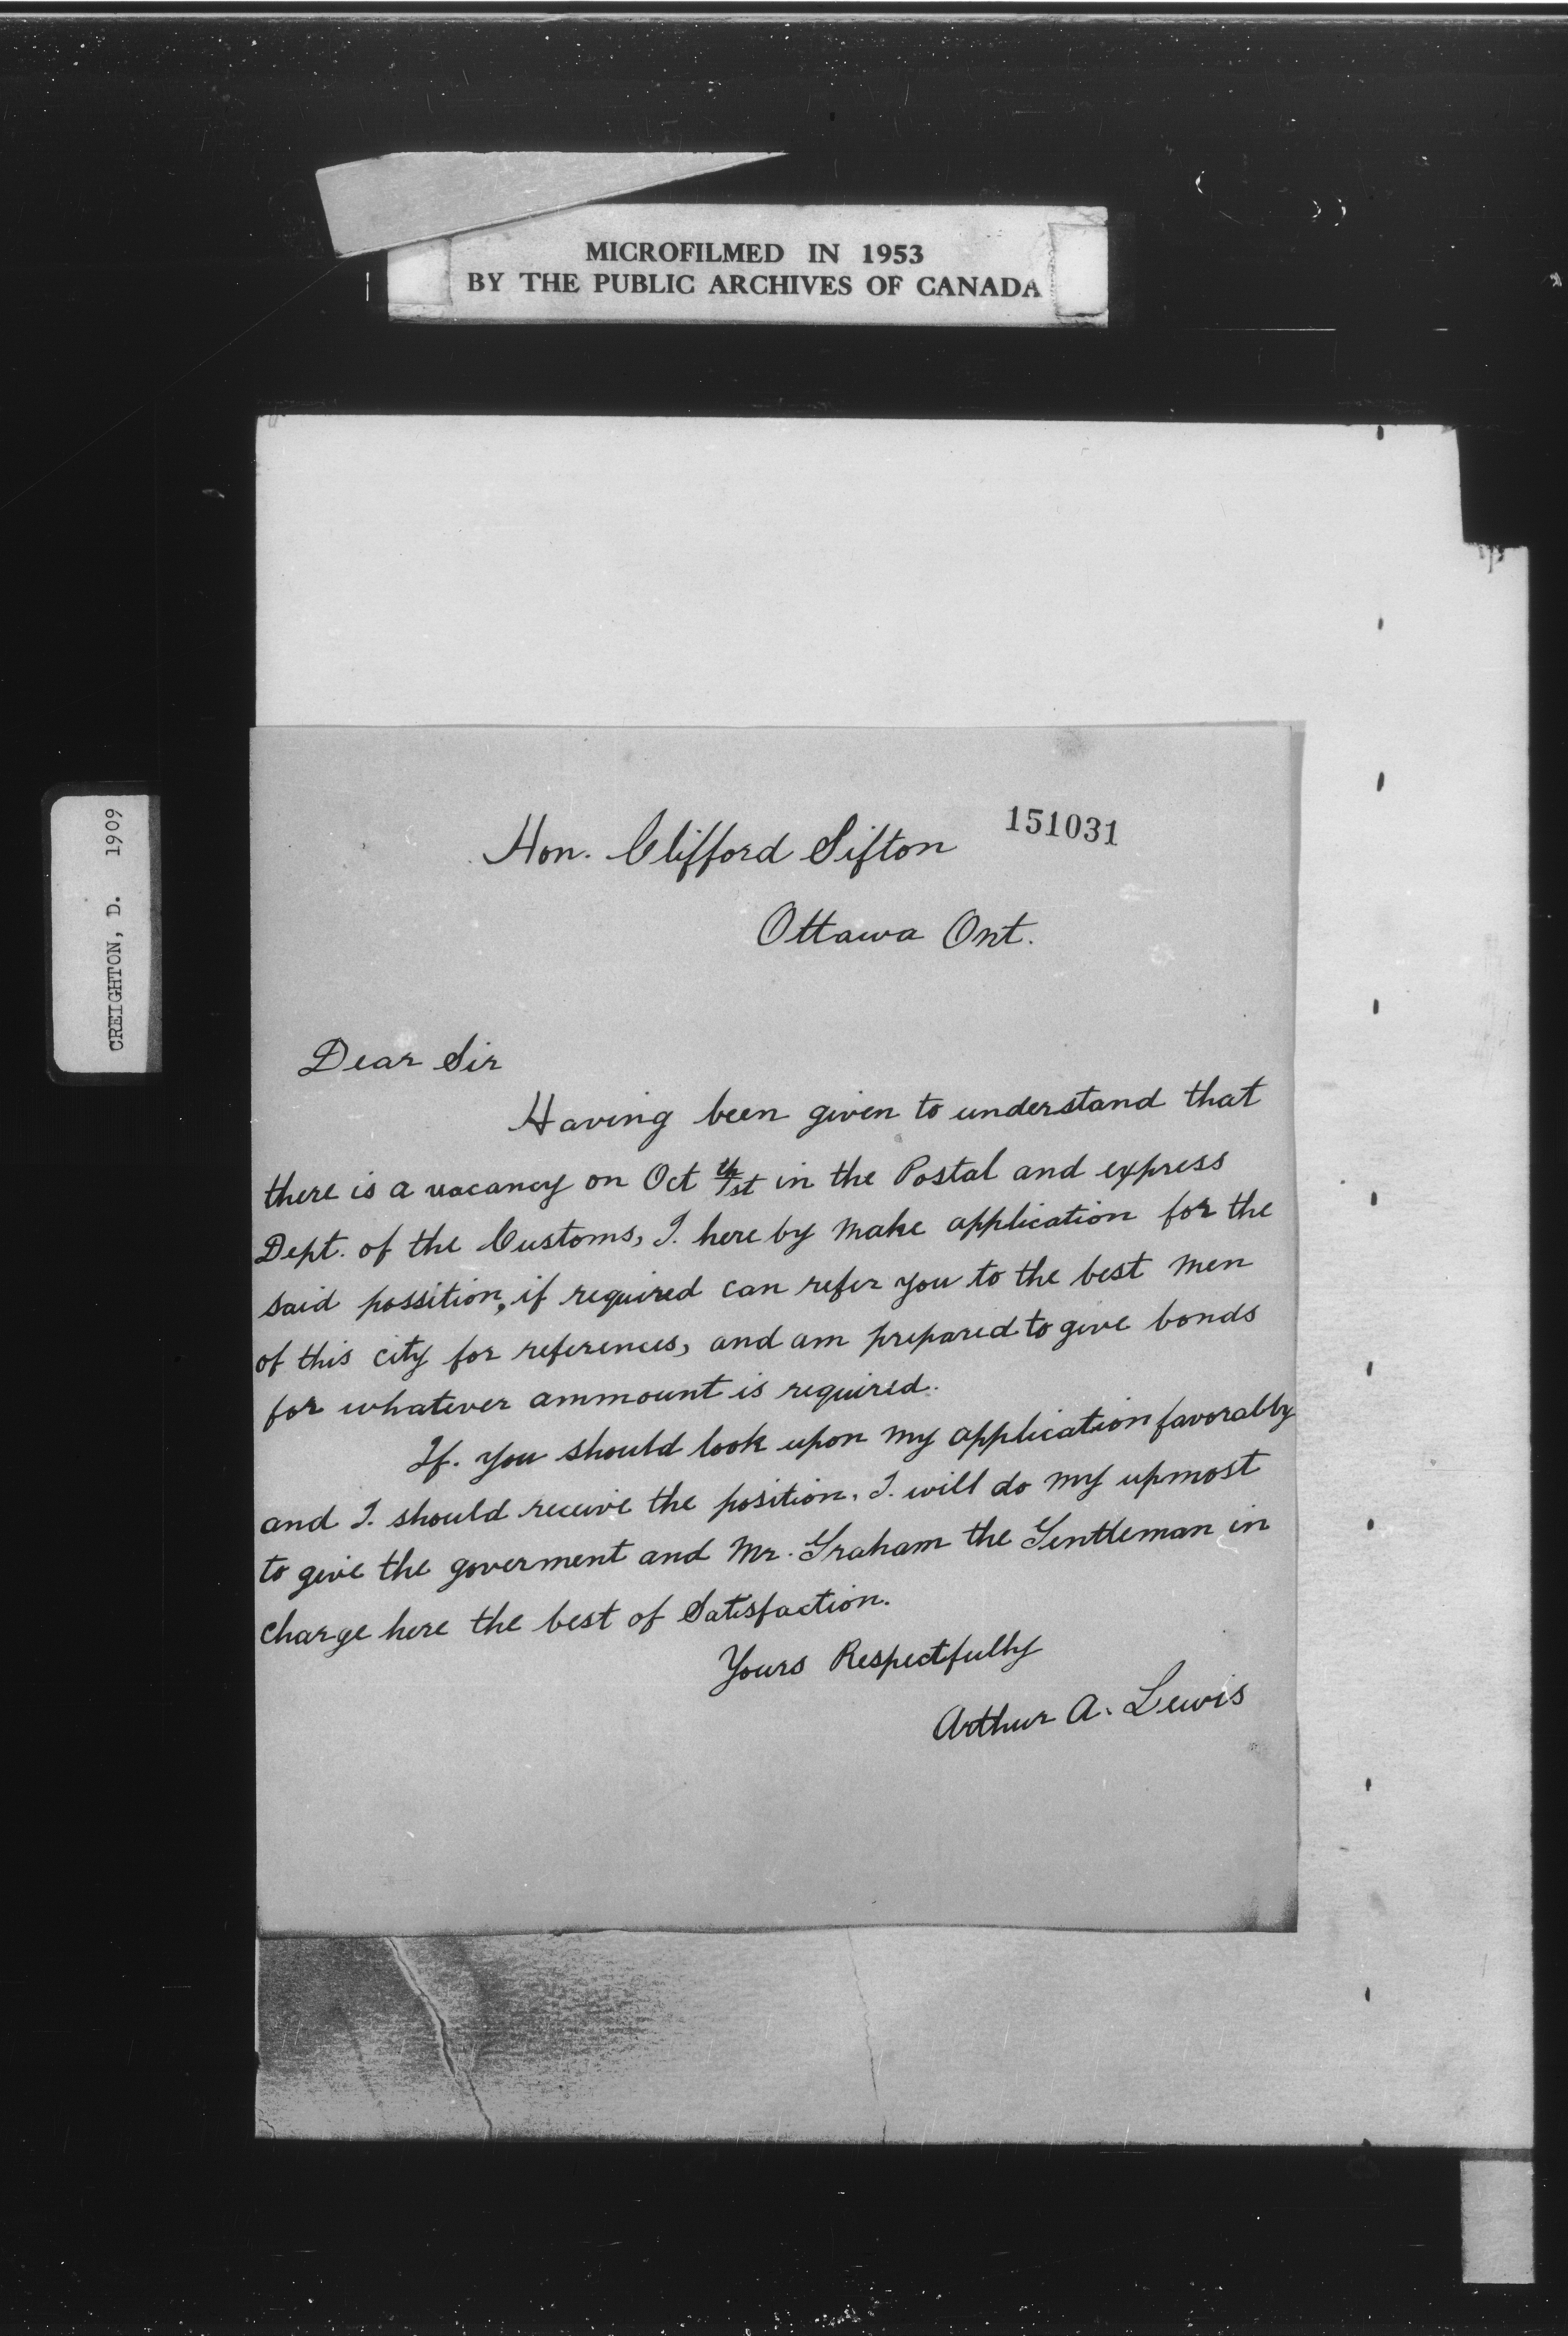 MICROFILMED IN 1953
BY THE PUBLIC ARCHIVES OF CANADA
CREIGHTON, D. 1909
151031
Hon. Clifford Sifton
Ottawa Ont.
Dear Sir
Having been given to understand that
there is a vacancy on Oct 1st in the Postal and express
Dept. of the Customs, I. here by make application for the
said possition, if required can refer you to the best men
of this city for references, and am prepared to give bonds
for whatever ammount is required.
If. you should look upon my application favorably
and I. should receive the position. I. will do my upmost
to give the goverment and Mr. Graham the Gentleman in
charge here the best of Satisfaction.
Yours Respectfully
Arthur A. Lewis